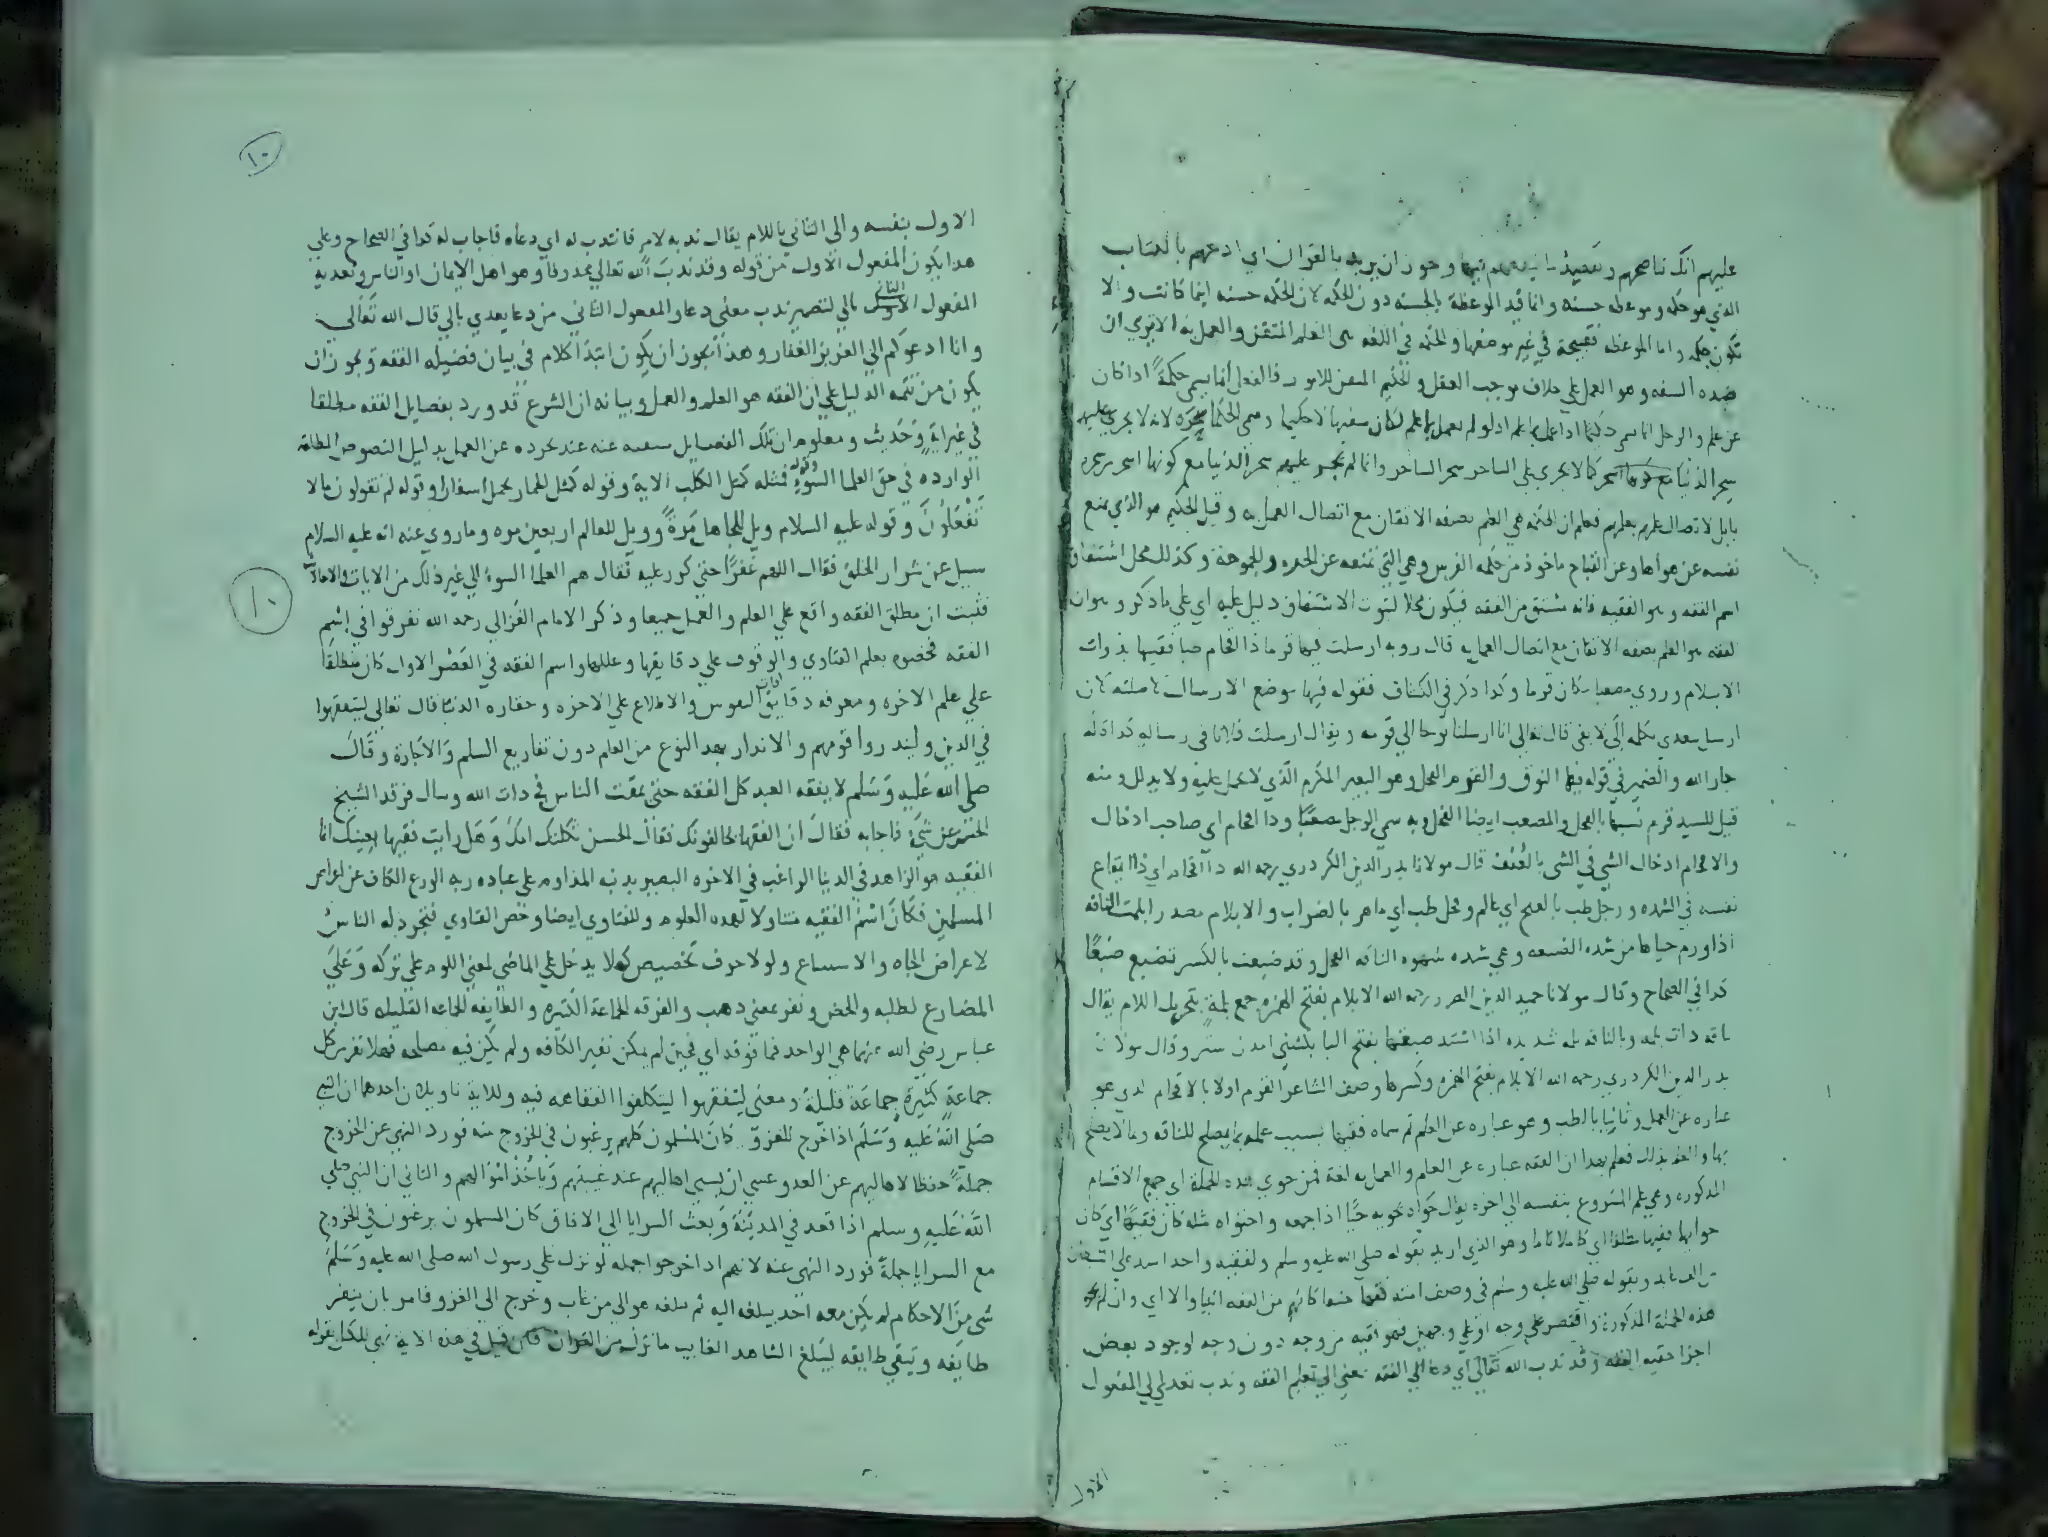 عليهم انك تناصحهم وتقصد ما ينفعهم فيها ويجوز ان يريد بالقران اي ادعهم بالكتاب
الذي هو حكمه وموعظه حسنه وانما قيد الموعظة بالحسنه دون الحكمه لان الحكمه حسنه اينما كانت والا
تكون حكمه واما الموعظه فقبيحة في غير موضعها والحكمه في اللغه هي العلم المتقن والعمل به الا تري ان
ضده السفه وهو العمل علي خلاف موجب العقل والحكيم المتقن للامور فالفعل انما يسمي حكمةً اذا كان
عن علم والرجل انما يسمي حكيما اذا عمل بالعلم اذ لو لم يعمل بالعلم لكان سفيها لا حكيما وسمي الحكما سحره لانه لا يجري عليهم
سحر الدنيا كما لا يجري علي الساحر سحر الساحر وانما لم يجر عليهم سحر الدنيا مع كونها اسحر من سحرة
بابل لاتصال عملهم بعلمهم فعلم ان الحكمه هي العلم بصفه الاتقان مع اتصال العمل به وقيل الحكيم هو الذي يمنع
نفسه عن هواها وعن القبايح ماخوذ من حكمه الفرس وهي التي تمنعه عن الحده والجموحة وكذلك محل اشتقاق
اسم الفقه وهو الفقيه فانه مشتق من الفقه فيكون محلا لثبوت الاشتقاق دليل عليه اي علي ما ذكر وهو ان
الفقه هو العلم بصفه الاتقان مع اتصال العمل به قال روبه ارسلت فيها قرما ذا اقحام طبا فقيها بذوات
الابلام وروي مصعبا مكان قرما وكذا ذكر في الكشاف فقوله فيها موضع الارسال لا صلته لان
ارسل يعدي بكلمه الي لا بفي قال تعالي انا ارسلنا نوحا الي قومه ويقال ارسلت فلانا في رساله كذا ذكره
جار الله والضمير في قوله فيها النوق والقرم الفحل وهو البعير المكرم الذي لا يحمل عليه ولا يذلل ومنه
قيل للسيد قرم تشبيها بالفحل والمصعب ايضا الفحل وبه سمي الرجل مصعبًا وذا اقحام اي صاحب ادخال
والاقحام ادخال الشي في الشي بالعنف قال مولانا بدر الدين الكردري رحمه الله ذا اقحام اي ذا ايقاع
نفسه في الشده ورجل طب بالفتح اي عالم وفحل طب اي ماهر بالضراب والابلام مصدر ابلمت الناقه
اذا ورم حياها من شده الضبعه وهي شده شهوه الناقه الفحل وقد ضبعت بالكسر تضبع ضبعًا
كذا في الصحاح وقال مولانا حميد الدين الضرير رحمه الله الابلام بفتح الهمزه جمع بلمةٍ بتحريك اللام يقال
ناقه ذات بلمه وبالناقه بلمه شديده اذا اشتد ضبعتها بفتح البا وقال مولانا
بدر الدين الكردري رحمه الله الابلام بفتح الهمزه وكسرها وصف الشاعر القرم اولا بالاقحام الذي هو
عباره عن العمل وثانيا بالطب وهو عباره عن العلم ثم سماه فقيها بسبب علمه بما يصلح للناقه وما لا يصلح
بها والعمل بذلك فعلم بهذا ان الفقه عباره عن العلم والعمل به لغة فمن حوي هذه الجملة اي جمع الاقسام
المذكوره وهي علم المشروع بنفسه الي اخره يقال حواه يحويه حيًا اذا جمعه واحتواه مثله كان فقيهًا اي كان
حوايها فقيها مطلقا اي كاملا تاما وهو الذي اريد بقوله صلي الله عليه وسلم ولفقيه واحد اشد علي الشيطان
من الف عابد وبقوله صلي الله عليه وسلم في وصف امته فقها كانهم من الفقه انبيا والا اي وان لم
هذه الجملة المذكورة واقتصر علي وجه او علي وجهين فهو فقيه من وجه دون وجه لوجود بعض
اجزا حقيه الفقه وقد ندب الله تعالي اي دعا الي الفقه يعني الي تعلم الفقه وندب تعدي الي المفعول
الاول
١٠
الاول بنفسه والي الثاني باللام يقال ندبه لامر فانتدب له اي دعاه فاجاب له كذا في الصحاح وعلي
هذا يكون المفعول الاول من قوله وقد ندب الله تعالي محذوفا وهو اهل الايمان او الناس وتعديه
المفعول الثاني بالي لتضمين ندب معني دعا والمفعول الثاني من دعا يعدي بالي قال الله تعالي
وانا ادعوكم الي العزيز الغفار وهذا يجوز ان يكون ابتدا كلام في بيان فضيله الفقه ويجوز ان
يكون من تتمه الدليل علي ان الفقه هو العلم والعمل وبيانه ان الشرع قد ورد بفضايل الفقه مطلقا
في غير ايةٍ وحديث ومعلوم ان تلك الفضايل منتفيه عنه عند تجرده عن العمل بدليل النصوص المطلقه
الوارده في حق العلما السوء وقوله فمثله كمثل الكلب الاية وقوله كمثل الحمار يحمل اسفارا وقوله لم تقولون ما لا
تفعلون وقوله عليه السلام ويل للجاهل مرةً وويل للعالم اربعين مره وما روي عنه انه عليه السلام
سيل عن شرار الخلق فقال اللهم غفرًا حتي كرر عليه فقال هم العلما السوء الي غير ذلك من الايات والاحاديث
فثبت ان مطلق الفقه واقع علي العلم والعمل جميعا وذكر الامام الغزالي رحمه الله تفرقوا في اسم
الفقه فخصوه بعلم الفتاوي والوقوف علي دقايقها وعللها واسم الفقه في العصر الاول كان مطلقا
علي علم الاخره ومعرفه دقايق افات النفوس والاطلاع علي الاخره وحقاره الدنيا قال تعالي ليتفقهوا
في الدين ولينذروا قومهم والانذار بهذا النوع من العلم دون تفاريع السلم والاجارة وقال
صلي الله عليه وسلم لا يفقه العبد كل الفقه حتي يمقت الناس في ذات الله وسال فرقد الشيخ
الحسن عن شيء فاجابه فقال ان الفقها يخالفونك فقال الحسن ثكلتك امك وهل رايت فقيها بعينك انما
الفقيه هو الزاهد في الدنيا الراغب في الاخره البصير بدينه المداوم علي عباده ربه الورع الكاف عن اعراض
المسلمين فكان اسم الفقيه متناولا لهذه العلوم وللفتاوي ايضا وخص الفتاوي فتجرد له الناس
لاغراض الجاه والاستتباع ولولا حرف تحضيض كهلا يدخل علي الماضي لمعني اللوم علي تركه وعلي
المضارع لطلبه والحض ونفر بمعني ذهب والفرقه الجماعة الكثيره والطايفه الجماعه القليله قال ابن
عباس رضي الله عنهما هي الواحد فما فوقه اي فحين لم يمكن نفير الكافه ولم يكن فيه مصلحه فهلا نفر من كل
جماعةٍ كثيرةٍ جماعة قليلة ومعني ليتفقهوا ليتكلفوا الفقاهه فيه وللاية تاويلان احدهما ان النبي
صلي الله عليه وسلم اذا خرج للغزو كان المسلمون كلهم يرغبون في الخروج معه فورد النهي عن الخروج
جملةً حفظا لاهاليهم عن العدو عسي ان يسبي اهاليهم عند غيبتهم وياخذ اموالهم والثاني ان النبي صلي
الله عليه وسلم اذا قعد في المدينة وبعث السرايا الي الافاق كان المسلمون يرغبون في الخروج
مع السرايا جملةً فورد النهي عنه لانهم اذا خرجوا جمله لو نزل علي رسول الله صلي الله عليه وسلم
شي من الاحكام لم يكن معه احد يبلغه اليه ثم يبلغه هو الي من غاب وخرج الي الغزو فامر بان ينفر
طايفه وتبقي طايفه ليبلغ الشاهد الغايب ما نزل من القران فان قيل في هذه الاية نهي للكل بقوله
١٠